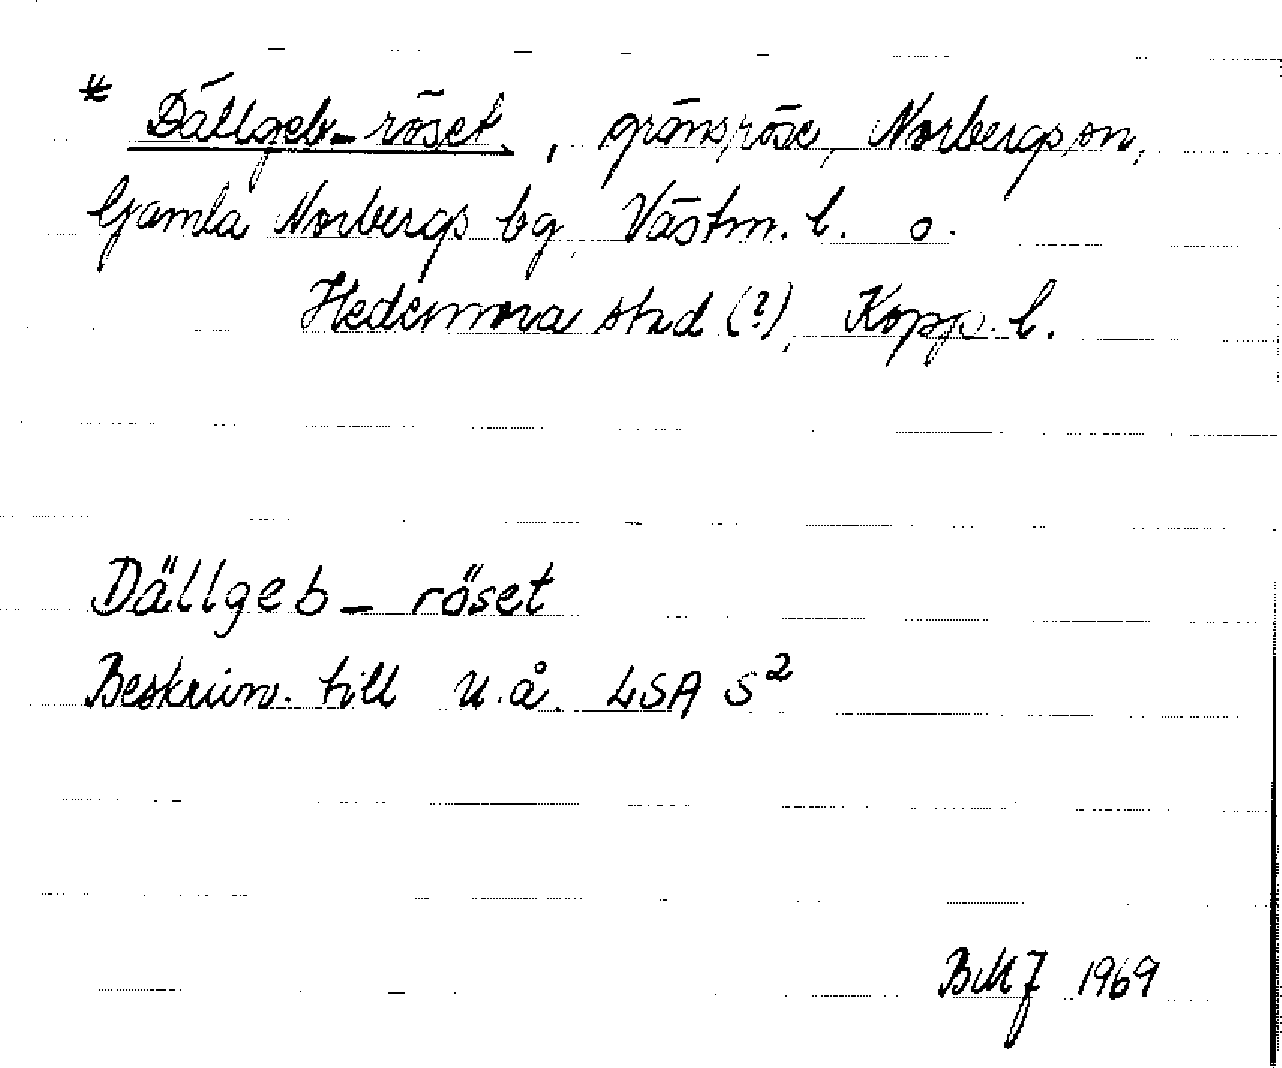 * Dällgeb-röset, gränsröse, Norbergs sn,
Gamla Norbergs bg, Västm. l. o.
Hedemora stad (?), Kopp. l.
Dällgeb- röset
Beskrivn. till u.å. LSA S²
BMJ 1969